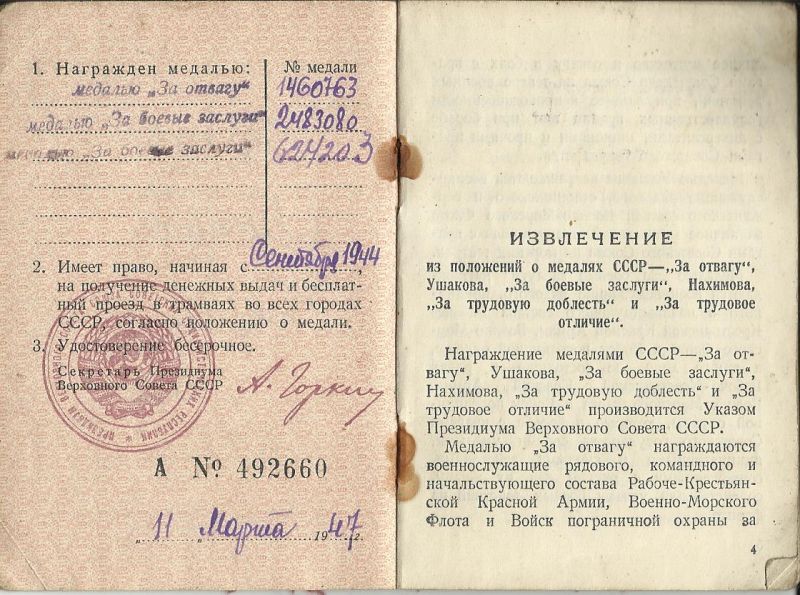 1. Награжден медалью:
№ медали
медалью „За отвагу“ 1460763
медалью „За боевые заслуги“ 2483080
медалью „За боевые заслуги“ 627203
2. Имеет право, начиная с Сентября 1944,
на получение денежных выдач и бесплат-
ный проезд в трамваях во всех городах
СССР, согласно положению о медали.
3. Удостоверение бессрочное.
Секретарь Президиума
Верховного Совета СССР
А. Горкин
А № 492660
„11„ Марта 1947г.
ИЗВЛЕЧЕНИЕ
из положений о медалях СССР—„За отвагу“,
Ушакова, „За боевые заслуги“, Нахимова,
„За трудовую доблесть“ и „За трудовое
отличие“.
Награждение медалями СССР—„За от-
вагу“, Ушакова, „За боевые заслуги“,
Нахимова, „За трудовую доблесть“ и „За
трудовое отличие“ производится Указом
Президиума Верховного Совета СССР.
Медалью „За отвагу“ награждаются
военнослужащие рядового, командного и
начальствующего состава Рабоче-Крестьян-
ской Красной Армии, Военно-Морского
Флота и Войск пограничной охраны за
4